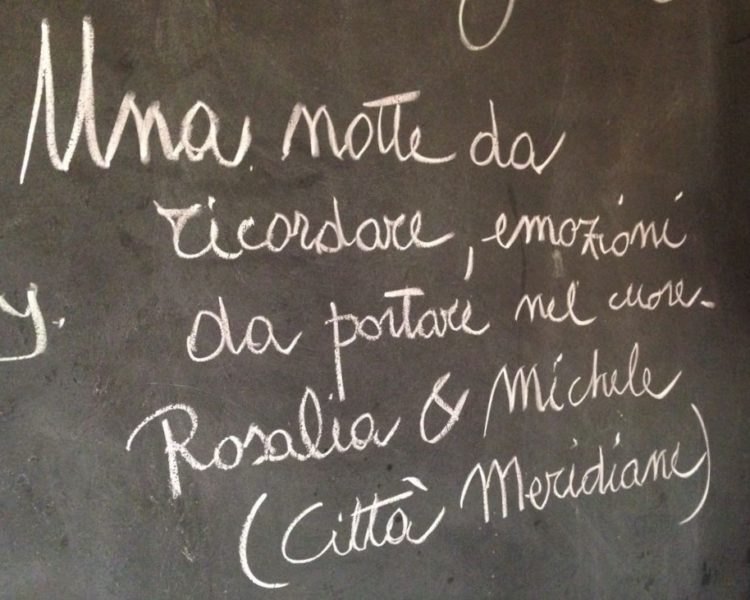 Una notte da
ricordare, emozioni
y.
da portare nel cuore.
Rosalia & Michele
(Città Meridiane)